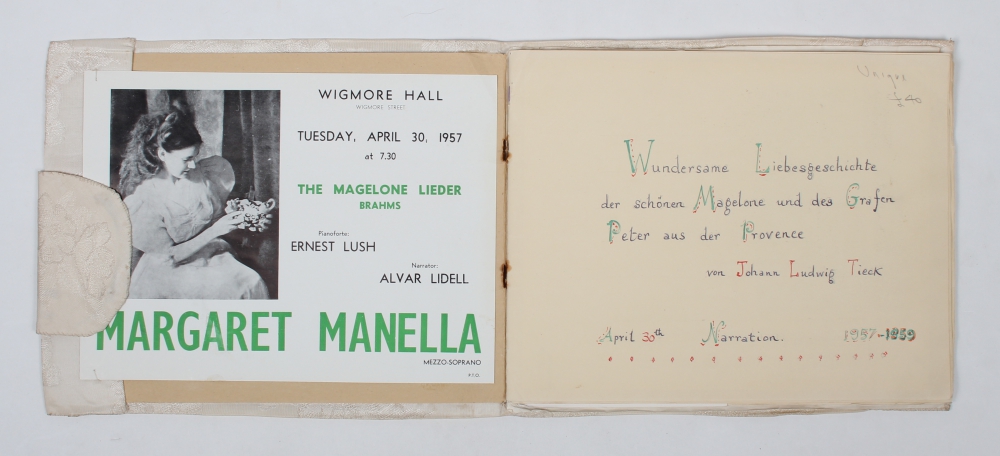 WIGMORE HALL
WIGMORE STREET
TUESDAY, APRIL 30, 1957
at 7.30
THE MAGELONE LIEDER
BRAHMS
Pianoforte:
ERNEST LUSH
Narrator:
ALVAR LIDELL
MARGARET MANELLA
MEZZO-SOPRANO
P.T.O.
Unique
40
Wundersame Liebesgeschichte
der schönen Magelone und des Grafen
Peter aus der Provence
von Johann Ludwig Tieck
April 30th Narration. 1957-1859